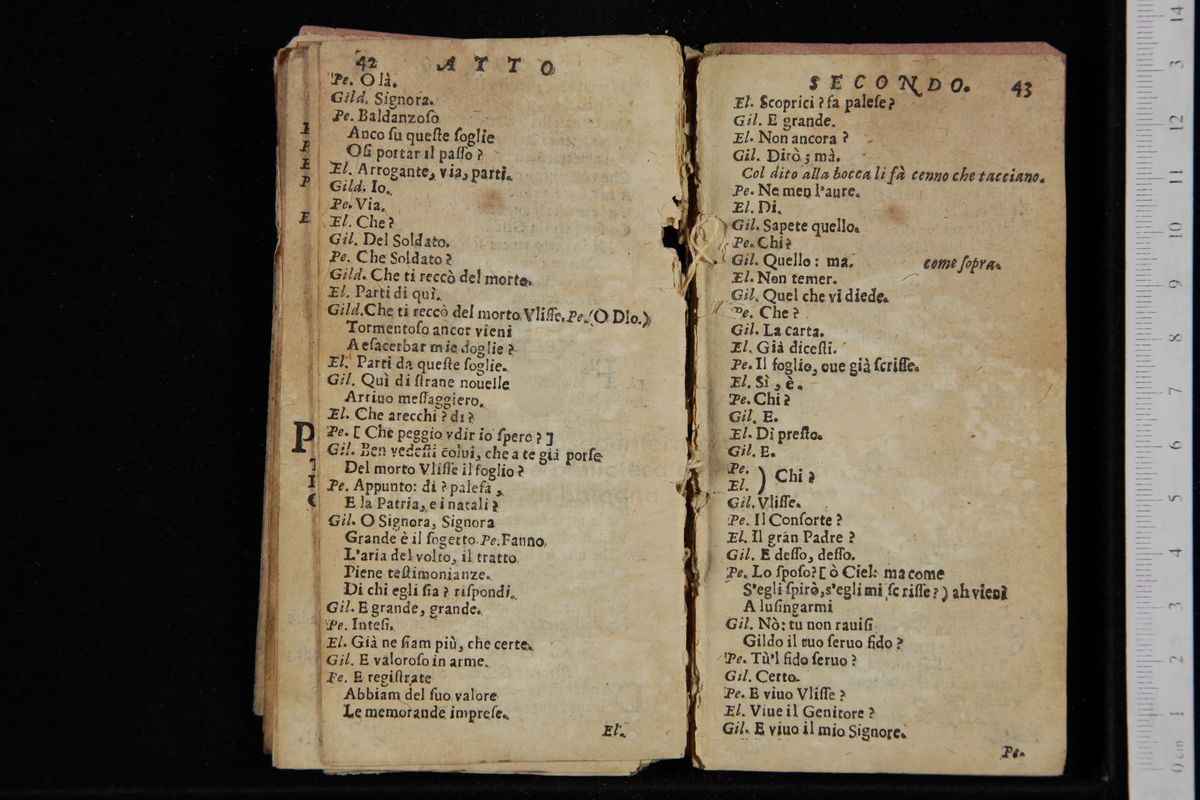 42 ATTO
Pe. O là.
Gild. Signora.
Pe. Baldanzoso
Anco su queſte ſoglie
Oſi portar il paſſo?
El. Arrogante, via, parti.
Gild. Io.
Pe. Via.
El. Che?
Gil. Del Soldato.
Pe. Che Soldato?
Gild. Che ti reccò del morto.
El. Parti di quì.
Gild. Che ti reccò del morto Vliſſe. Pe. (O Dio.)
Tormentoſo ancor vieni
A eſacerbar mie doglie?
El. Parti da queſte ſoglie.
Gil. Quì di ſtrane nouelle
Arriuo meſſaggiero.
El. Che arecchi? di?
Pe. [ Che peggio vdir io ſpero? ]
Gil. Ben vedeſti colui, che a te già porſe
Del morto Vliſſe il foglio?
Pe. Appunto: di? paleſa,
E la Patria, e i natali?
Gil. O Signora, Signora
Grande è il ſogetto. Pe. Fanno
L'aria del volto, il tratto
Piene teſtimonianze.
Di chi egli ſia? riſpondi.
Gil. E grande, grande.
Pe. Inteſi.
El. Già ne ſiam più, che certe.
Gil. E valoroſo in arme.
Pe. E regiſtrate
Abbiam del ſuo valore
Le memorande impreſe.
El.
SECONDO. 43
El. Scoprici? fa paleſe?
Gil. E grande.
El. Non ancora?
Gil. Dirò; mà.
Col dito alla bocca li fà cenno che tacciano.
Pe. Ne men l'aure.
El. Di.
Gil. Sapete quello.
Pe. Chi?
Gil. Quello: ma. come ſopra.
El. Non temer.
Gil. Quel che vi diede.
Pe. Che?
Gil. La carta.
El. Già diceſti.
Pe. Il foglio, oue già ſcriſſe.
El. Sì, è.
Pe. Chi?
Gil. E.
El. Dì preſto.
Gil. E.
Pe.
El. ) Chi?
Gil. Vliſſe.
Pe. Il Conſorte?
El. Il gran Padre?
Gil. E deſſo, deſſo.
Pe. Lo ſpoſo? [ ò Ciel: ma come
S'egli ſpirò, s'egli mi ſcriſſe? ) ah vieni
A luſingarmi
Gil. Nò: tu non rauiſi
Gildo il tuo ſeruo fido?
Pe. Tù'l fido ſeruo?
Gil. Certo.
Pe. E viuo Vliſſe?
El. Viue il Genitore?
Gil. E viuo il mio Signore.
Pe.